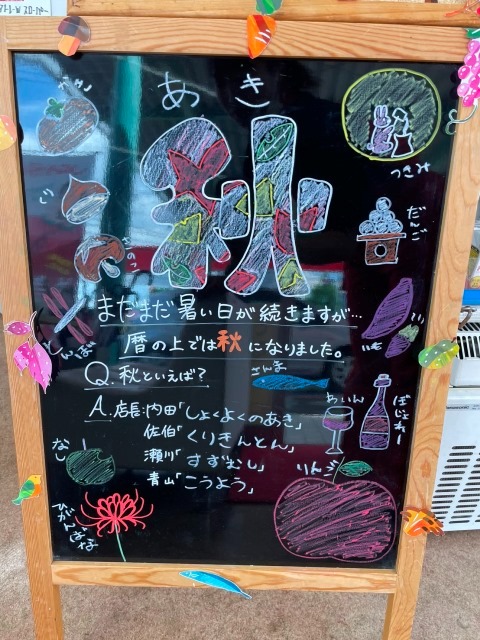 あき
秋
かき
つきみ
だんご
きのこ
とんぼ
まだまだ暑い日が続きますが…
暦の上では秋になりました。
Q.秋といえば?
さんま
いも
A.店長:内田「しょくよくのあき」
佐伯「くりきんとん」
瀬川「すずむし」
青山「こうよう」
わいん
ぼじょれー
なし
りんご
ひがんばな